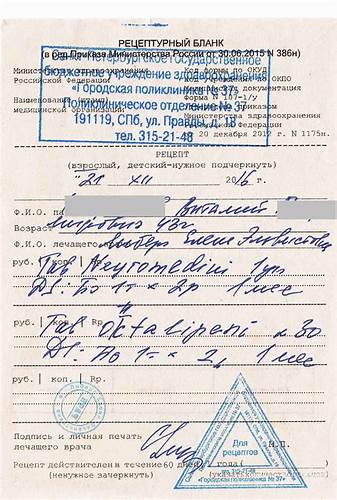 РЕЦЕПТУРНЫЙ БЛАНК
(в ред. Приказа Министерства России от 30.06.2015 N 386н)
Санкт-Петербургское государственное
бюджетное учреждение здравоохранения
«Городская поликлиника № 37»
Поликлиническое отделение № 37
191119, СПб, ул. Правды, д. 18
тел. 315-21-48
Министерство здравоохранения
Российской Федерации
Наименование (штамп)
медицинской организации
Код формы по ОКУД
Код учреждения по ОКПО
Медицинская документация
Форма N 107-1/у
Утверждена приказом
Министерства здравоохранения
Российской Федерации
от 20 декабря 2012 г. N 1175н.
РЕЦЕПТ
(взрослый, детский-нужное подчеркнуть)
"21" XII 2016 г.
Ф.И.О. Виталий
Возраст 43г
Ф.И.О. лечащего Елене
руб. | коп. | Rp.
Tab Neyromedini
DS: По 1т × 2р 1 мес
#
руб. | коп. | Rp.
Tab Oktalipeni n 30
DS: По 1т × 2р 1 мес
руб. | коп. | Rp.
Подпись и личная печать
лечащего врача
М.П.
Для
рецептов
315-21-48
«Городская поликлиника № 37»
Рецепт действителен в течение 60 дней, 1 года (
(ненужное зачеркнуть)